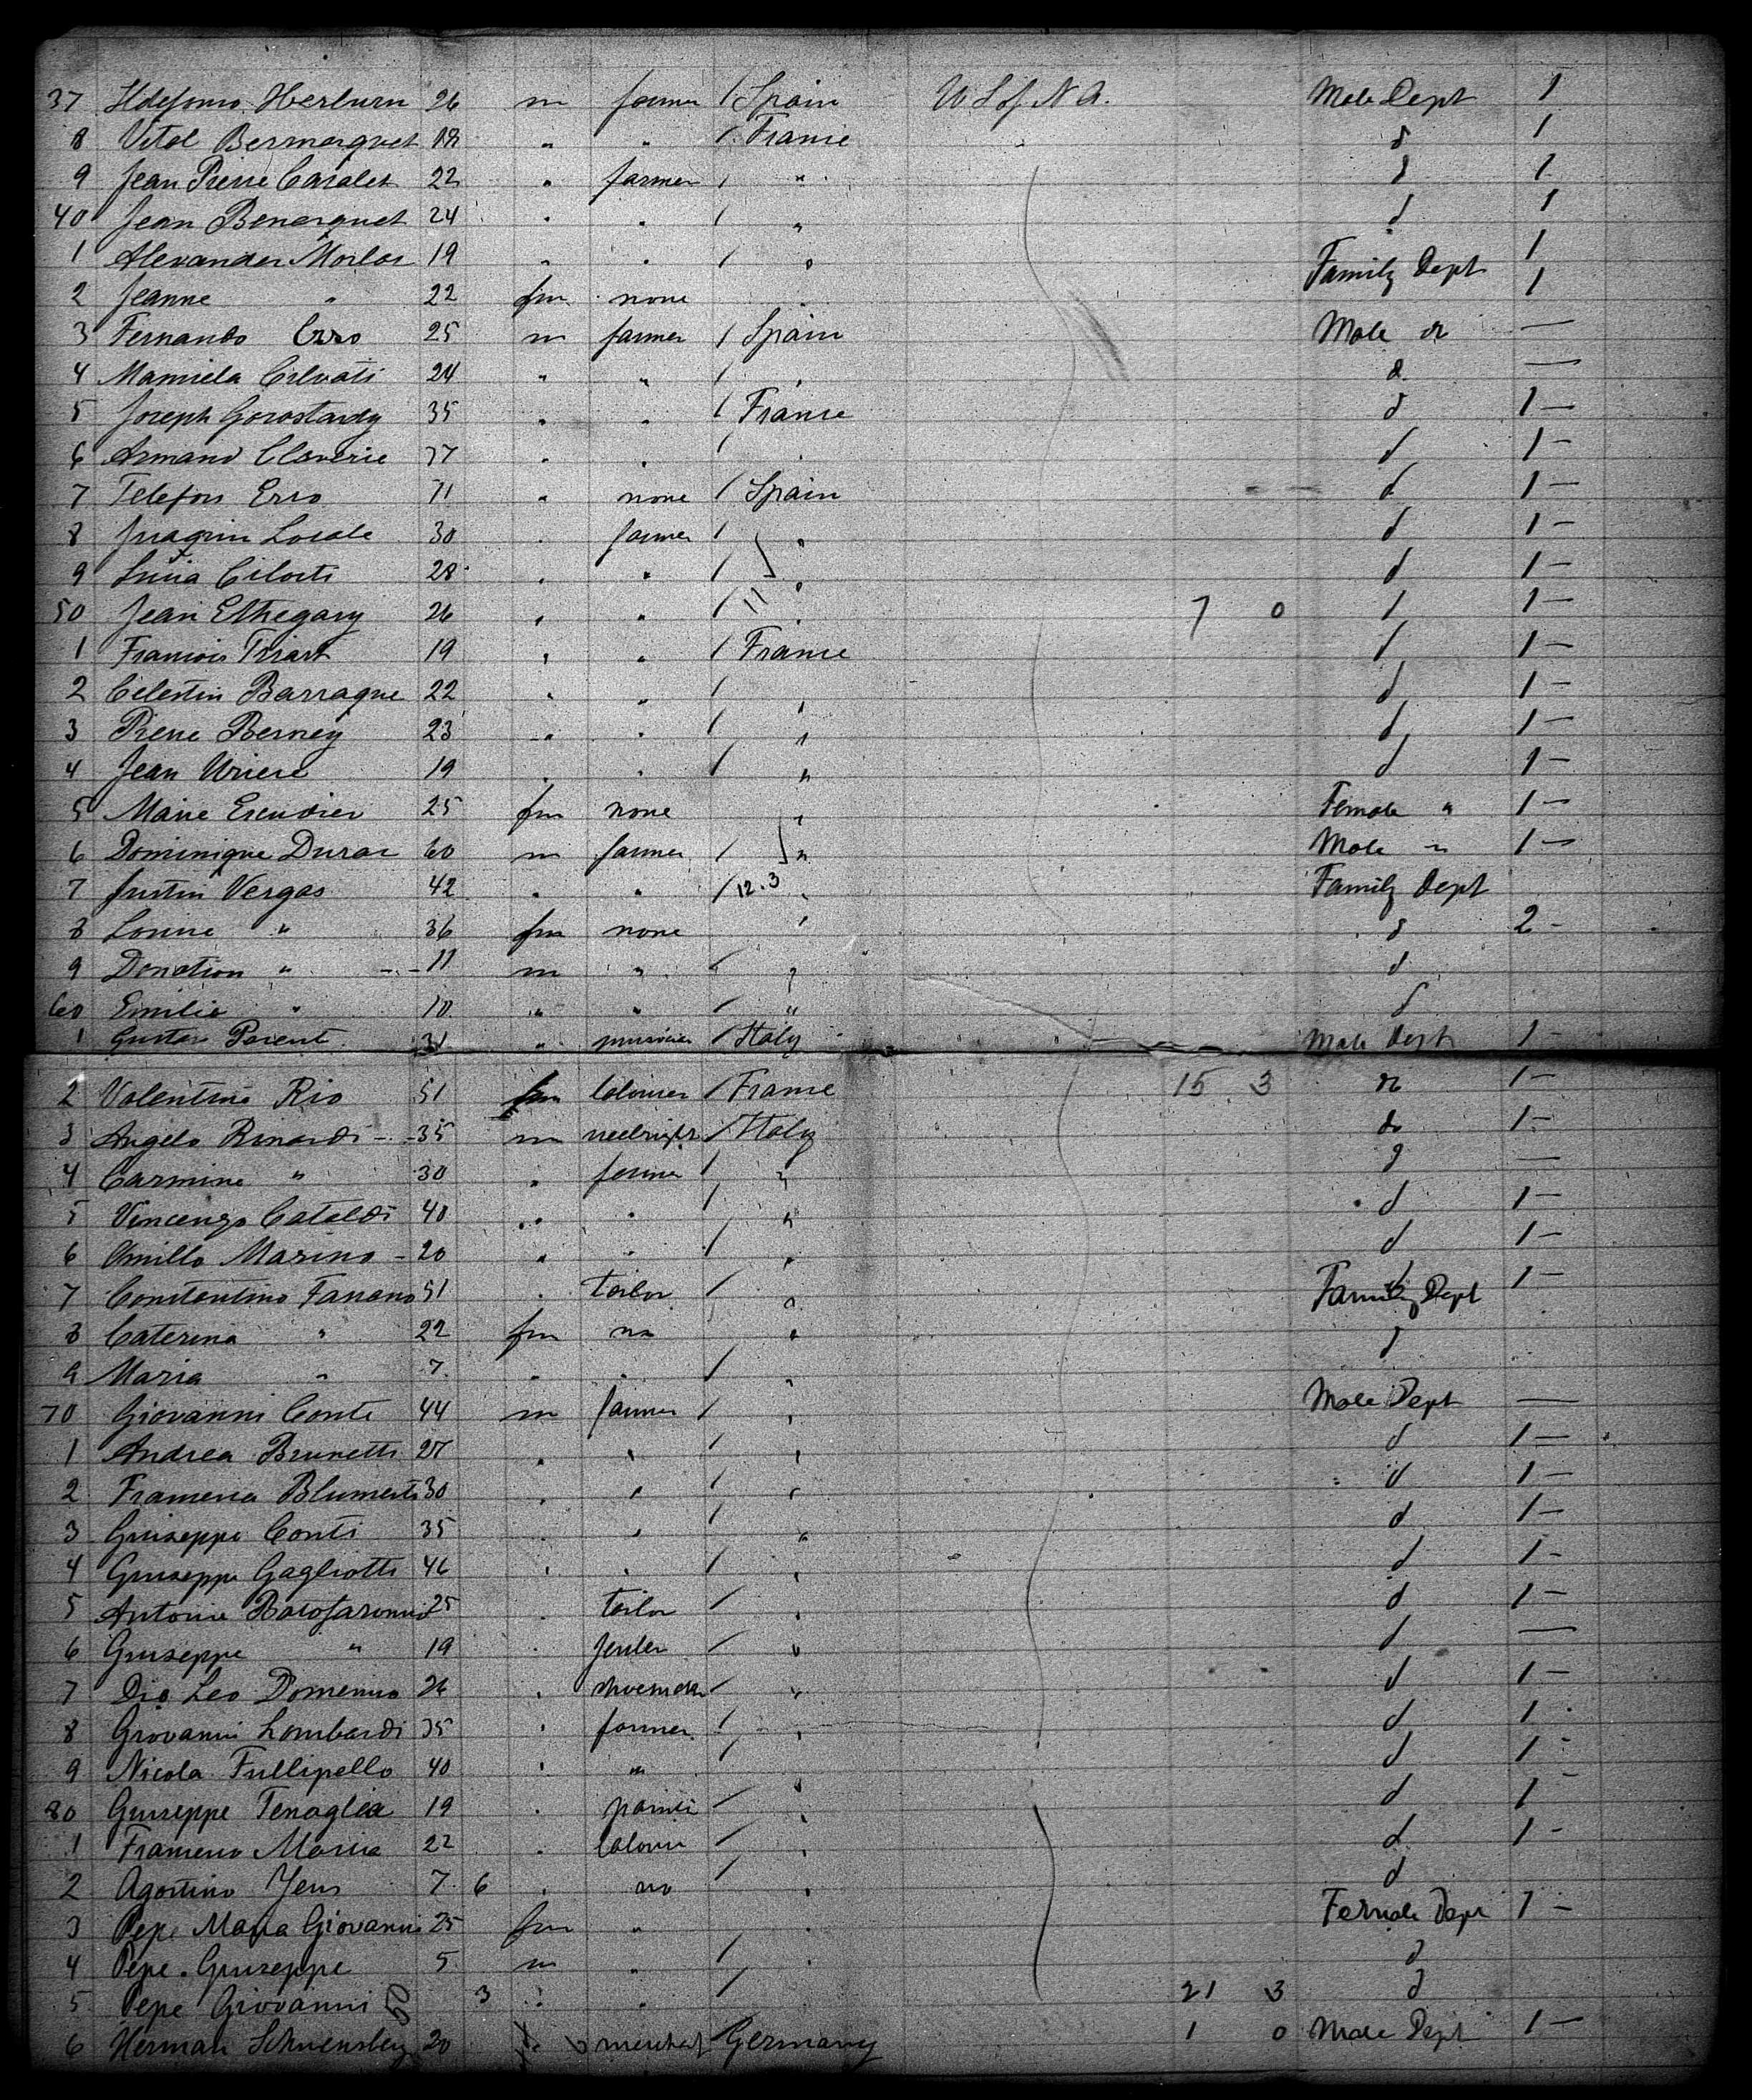 37 Ildefonso Herburn 26 m farmer / Spain U S of N A. Male Dept 1
8 Vital Bermarquet 18 " " / France d 1
9 Jean Pierre Casalet 22 " farmer / " d 1
40 Jean Benarquet 24 " " / " d 1
1 Alexander Morlas 19 " " / " Family Dept 1
2 Jeanne " 22 fm none " 1
3 Fernando Erro 25 m farmer / Spain Male do —
4 Manuela Cilvati 24 " " / " d —
5 Joseph Gorostardy 35 " " / France d 1 —
6 Armand Claverie 37 " " / " d 1 —
7 Telefon Erro 71 " none / Spain d 1 —
8 Juaquin Locale 30 " farmer / " d 1 —
9 Lucia 28 " " / " d 1 —
50 Jean Ethegary 26 " " / 11 " 7 0 d 1 —
1 Francois Triart 19 " " / France d 1 —
2 Celestin Barraque 22 " " / " d 1 —
3 Pierre Berney 23 " " / " d 1 —
4 Jean 19 " " / " d 1 —
5 Marie Escudier 25 fm none " Female " 1 —
6 Dominique Durac 60 m farmer / " Male " 1 —
7 Justin Vergas 42 " " / 12.3 " Family Dept
8 " 36 fm none " d 2 -
9 Donation " 11 m " / " d
60 Emilie " 10 " " / " d
1 Gustav Parent 31 " musician / Italy Male Dept 1 -
2 Valentine Rio 51 fm laborer / France 15 3 do 1 —
3 Angelo Rinardi 35 m / Italy do 1 -
4 Carmine " 30 " farmer / " d —
5 Vincenzo Cataldi 40 " " / " d 1 —
6 Marino 20 " " / " d 1 —
7 Constantino Fanano 51 " tailor / " Family Dept 1 —
8 Caterina " 22 fm no " d
9 Maria " 7 " " / "
70 Giovanni Conte 44 m farmer / " Male Dept —
1 Andrea Brunetti 27 " " / " d 1 —
2 Francesca Blumetti 30 " " / " d 1 —
3 Giuseppe Conti 35 " " / " d 1 —
4 Giuseppe Gagliotti 46 " " / " d 1 -
5 Antonio 25 " tailor / " d 1 —
6 Giuseppe " 19 " / " d —
7 Dio Leo Domenico 26 " shoemaker / " d 1 —
8 Giovanni Lombardi 35 " farmer / " d 1 -
9 Nicola Fullipello 40 " " / " d 1 -
80 Giuseppe Tenaglia 19 " / " d 1 -
1 Francesco Maria 22 " laborer / " d 1 -
2 Agostino 7 6 " no / " d
3 Pepe Maria Giovanni 25 fm " " Female Dept 1 -
4 Pepe Giuseppe 5 m " / " d
5 Pepe Giovanni 3 " " / 21 3 d
6 Herman 20 " merchant / Germany 1 0 Male Dept 1 —